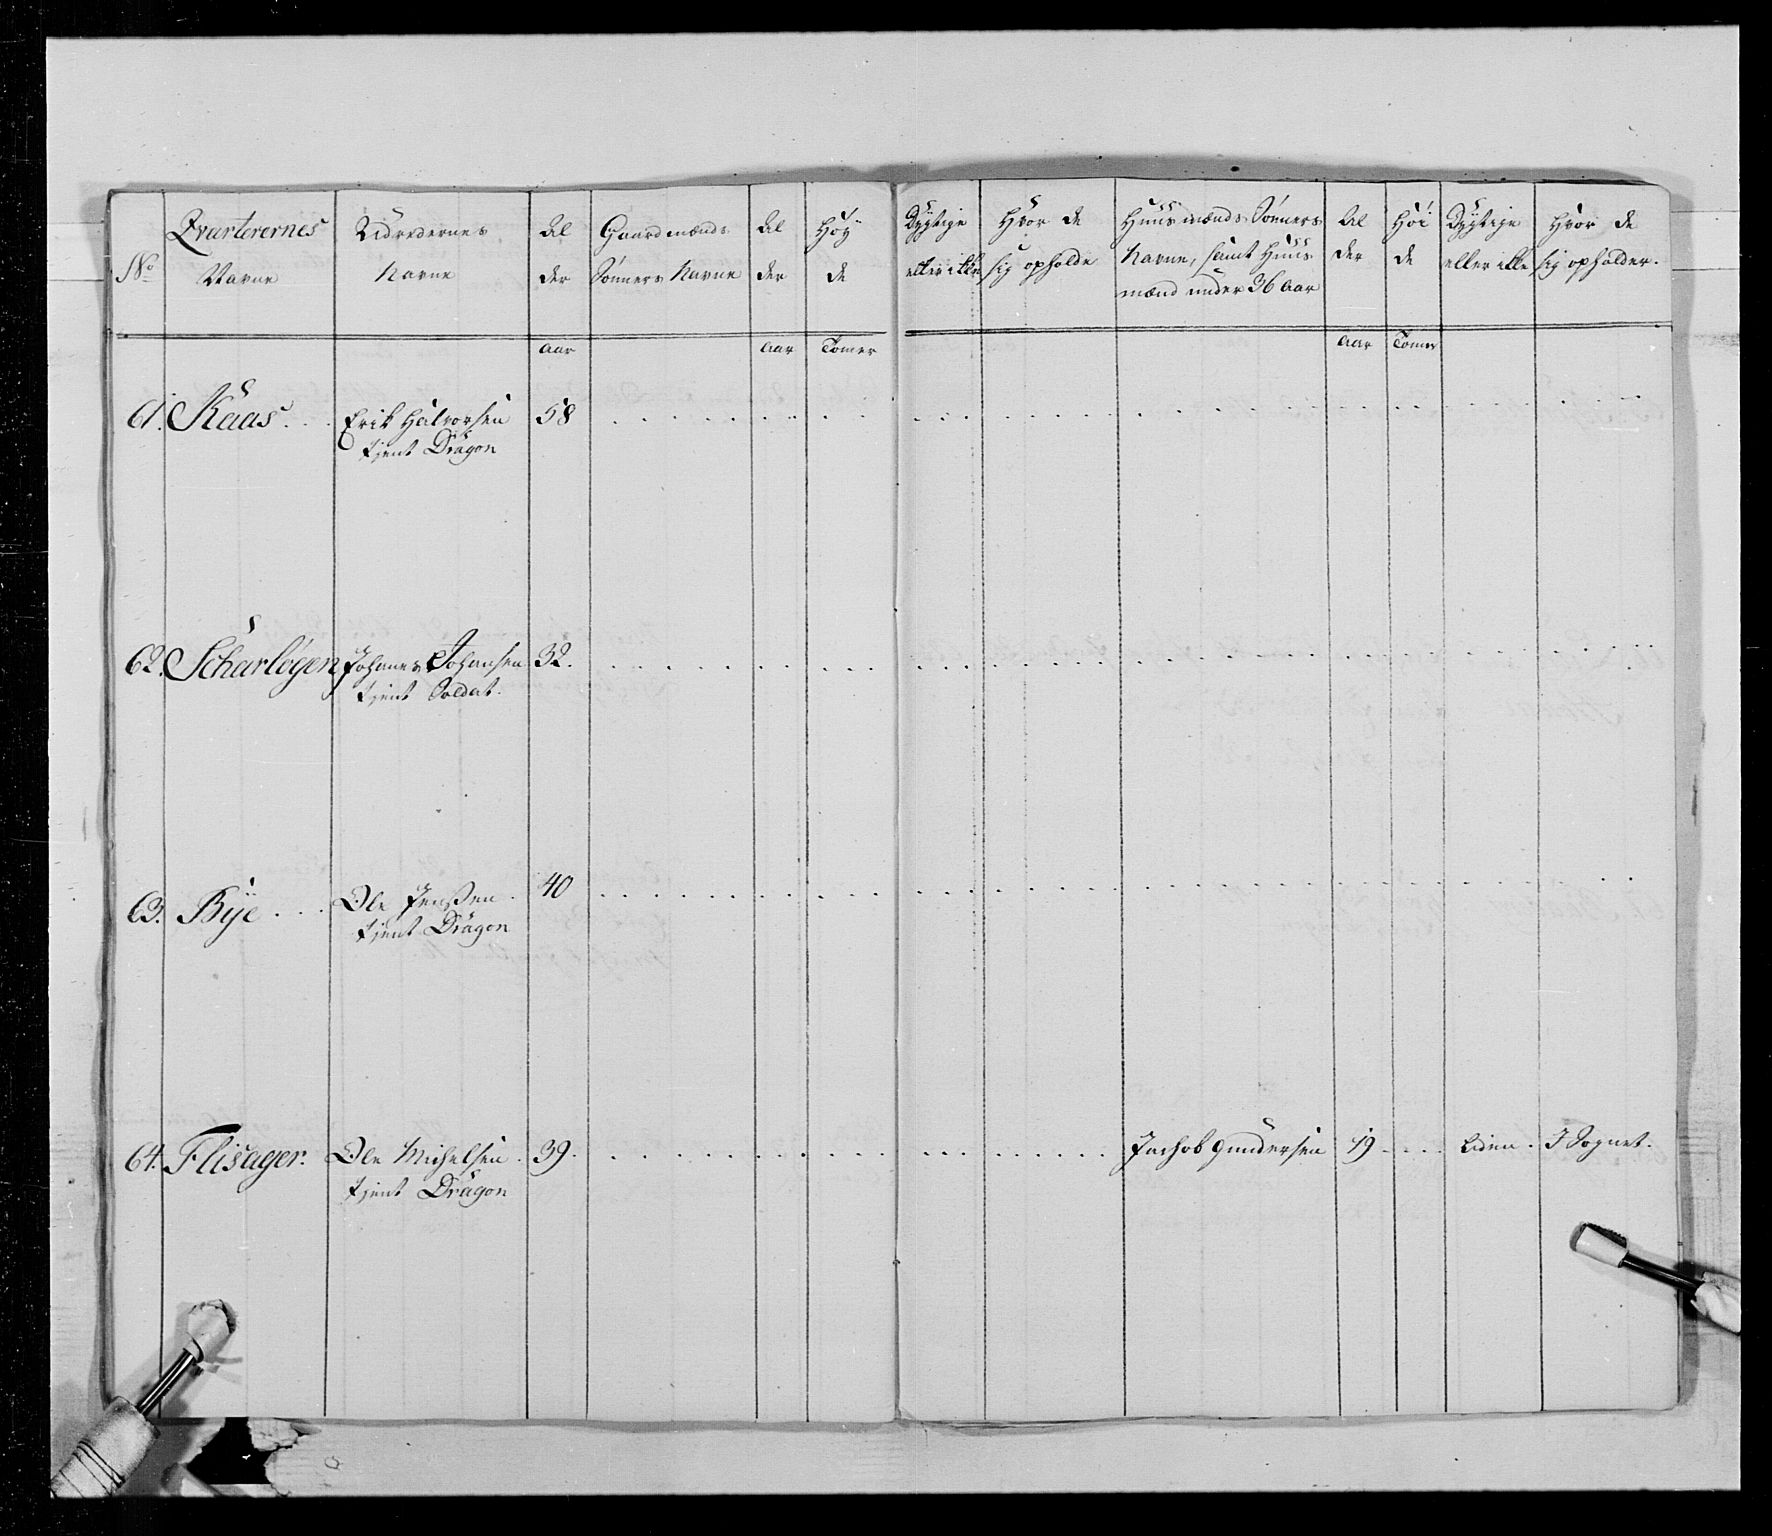 No Qvarterernes Navne
Beboernes Navne
Al der
Gaardmænds Sönners Navne
Al der
Höy de
Dygtige eller ikke
Hvor de sig opholde
Huusmænds Sönners Navne, samt Huusmænd under 36 Aar
Al der
Höi de
Dygtige eller ikke
Hvor de sig opholder.
Aar Aar Tomer Aar Tomer
61. Kaas . . . Erik Halvorsen 58
tient Dragon
62. Scharlögen Johanes Johansen 32.
tient Soldat.
63. Bye . . . Ole Jenssen . 40
tient Dragon
64. Flisager. Ole Michelsen . 39. Jachob Gundersen 19 . . . Liden . I Sognet.
tient Dragon